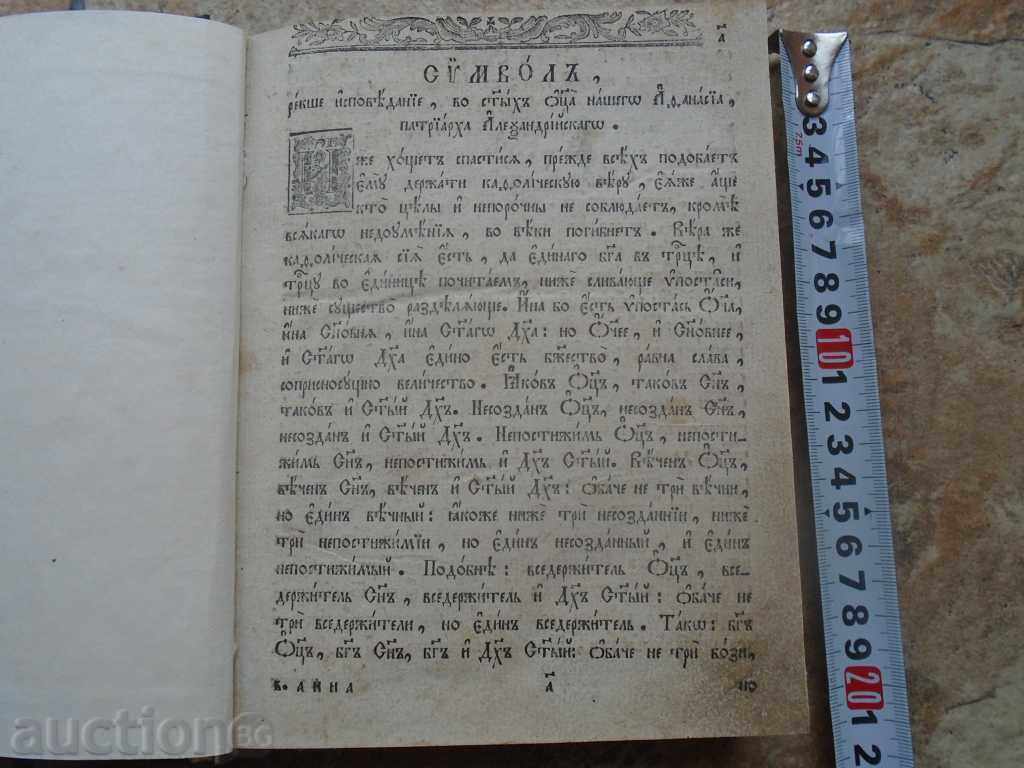 а҃
СѴ́МВО́ЛЪ,
ре́кше и҆сповѣ́данїе, во ст҃ы́хъ ѻ҆ц҃а̀ на́шегѡ а҆ѳана́сїа,
патрїа́рха а҆леѯандрі́йскагѡ.
И҆́же хо́щетъ спасти́сѧ, пре́жде всѣ́хъ подоба́етъ
є҆мꙋ̀ держа́ти каѳолі́ческꙋю вѣ́рꙋ, є҆ѧ́же а҆́ще
кто̀ цѣ́лы и҆ непоро́чны не соблюда́етъ, кромѣ̀
всѧ́кагѡ недоꙋмѣ́нїѧ, во вѣ́ки поги́бнетъ. Вѣ́ра же
каѳолі́ческаѧ сїѧ̀ є҆́сть, да є҆ди́наго бг҃а въ трⷪ҇цѣ, и҆
трⷪ҇цꙋ во є҆ди́ницѣ почита́емъ, нижѐ слива́юще ѵ҆поста̑си,
нижѐ сꙋщество̀ раздѣлѧ́юще. И҆́на бо є҆́сть ѵ҆поста́сь ѻ҆́ч҃а,
и҆́на сн҃о́внѧ, и҆́на ст҃а́гѡ дх҃а: но ѻ҆́ч҃ее, и҆ сн҃о́внее,
и҆ ст҃а́гѡ дх҃а є҆ди́но є҆́сть бж҃ество̀, ра́вна сла́ва,
соприсносꙋ́щно вели́чество. Ꙗ҆ко́въ ѻ҆ц҃ъ, тако́въ сн҃ъ,
тако́въ и҆ ст҃ы́й дх҃ъ. Несозда́нъ ѻ҆ц҃ъ, несозда́нъ сн҃ъ,
несозда́нъ и҆ ст҃ы́й дх҃ъ. Непостижи́мъ ѻ҆ц҃ъ, непости-
жи́мъ сн҃ъ, непостижи́мъ и҆ дх҃ъ ст҃ы́й. Вѣ́ченъ ѻ҆ц҃ъ,
вѣ́ченъ сн҃ъ, вѣ́ченъ и҆ ст҃ы́й дх҃ъ: ѻ҆ба́че не трѝ вѣ́чни,
но є҆ди́нъ вѣ́чный: ꙗ҆́коже нижѐ трѝ несозда́ннїи, нижѐ
трѝ непостижи́мїи, но є҆ди́нъ несозда́нный, и҆ є҆ди́нъ
непостижи́мый. Подо́бнѣ: вседержи́тель ѻ҆ц҃ъ, все-
держи́тель сн҃ъ, вседержи́тель и҆ дх҃ъ ст҃ы́й: ѻ҆ба́че не
трѝ вседержи́тели, но є҆ди́нъ вседержи́тель. Та́кѡ: бг҃ъ
ѻ҆ц҃ъ, бг҃ъ сн҃ъ, бг҃ъ и҆ дх҃ъ ст҃ы́й: ѻ҆ба́че не трѝ бо́зи,
в. АЙНА а҃ но
25m
3 4 5 6 7 8 9 10 1 2 3 4 5 6 7 8 9 20 1 2
auction BG